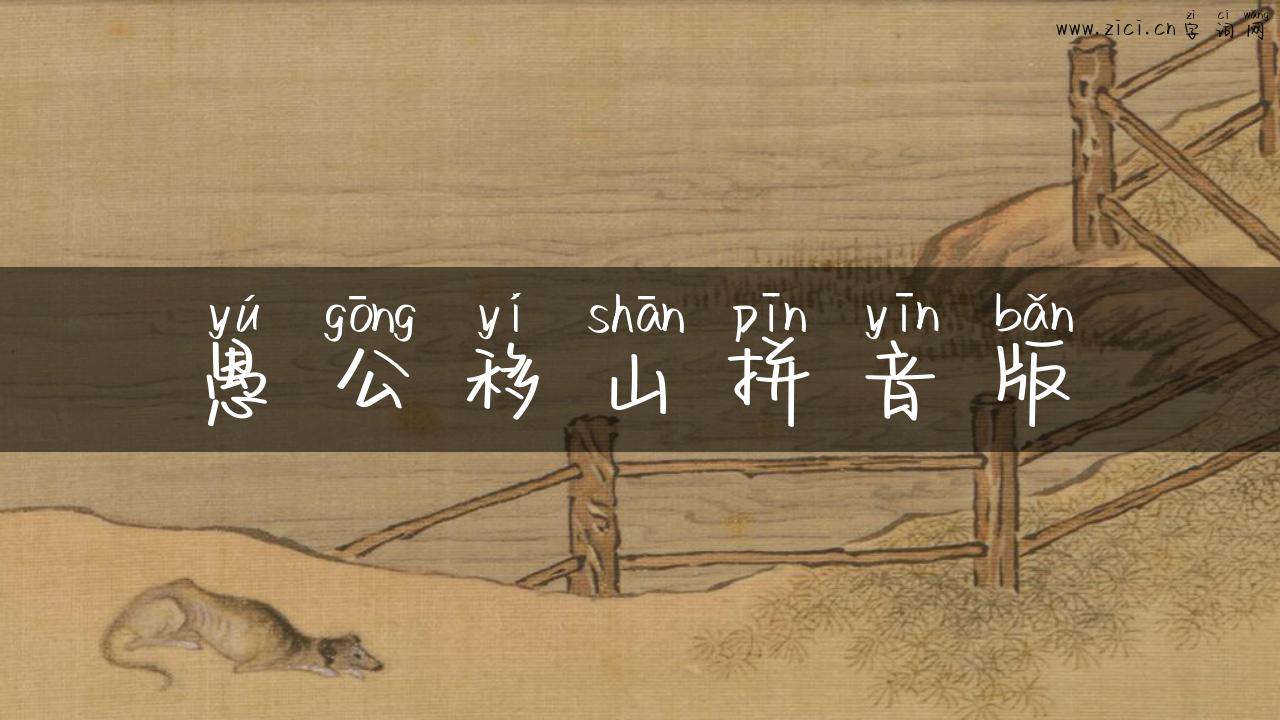 zi ci wang
www.zici.cn 字词网
yú gōng yí shān pīn yīn bǎn
愚公移山拼音版